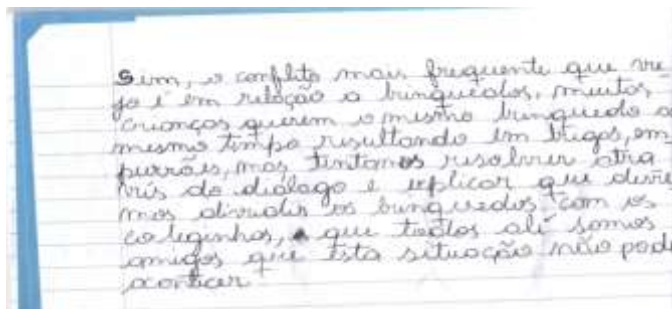 Sim, o conflito mais frequente que ve
jo é em relação a brinquedos, muitas
crianças querem o mesmo brinquedo a
mesmo tempo resultando em brigas, em
purrões, mas tentamos resolver atra
vés do diálogo e explicar que deve
mos dividir os brinquedos com os
coleguinhas, que todos ali somos
amigos que esta situação não pode
acontecer